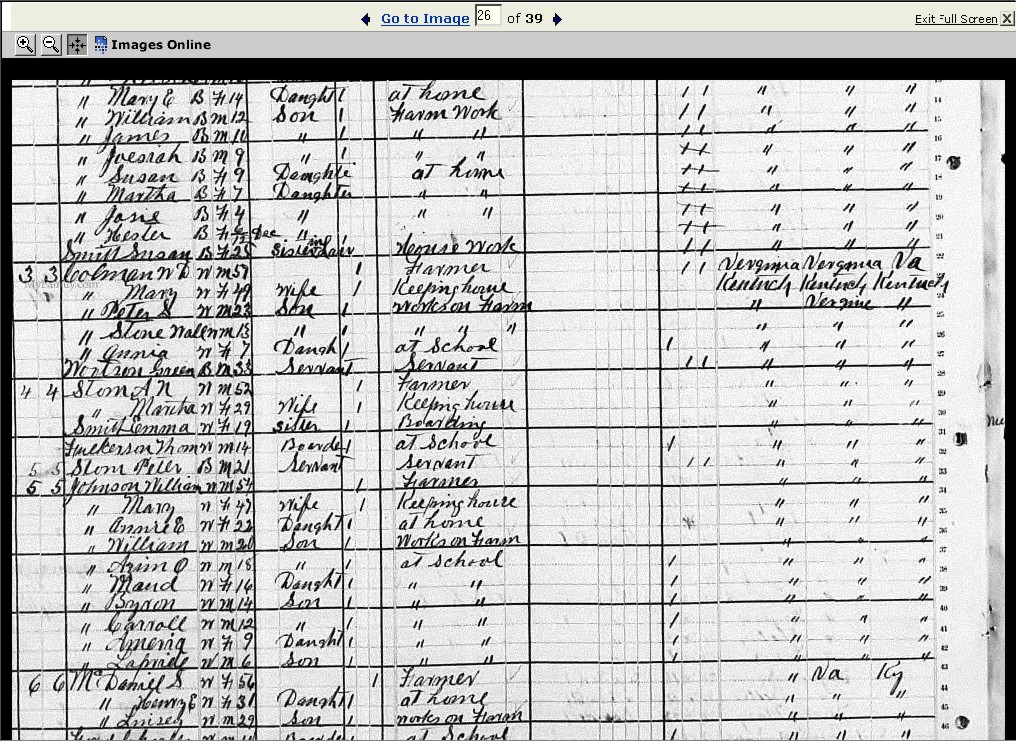 Go to Image 26 of 39 Exit Full Screen
Images Online
" Mary E B F 14 Daught / at home / / " " "
" William B M 12 Son / Farm Work / / " " " 14
" James B M 11 " / " " / / " " " 15
" Josiah B M 9 " / " " " " " 16
" Susan B F 9 Daughte at home " " " 17
" Martha B F 7 Daughter " " " " " 18
" Josie B F 4 " " " " " " 19
" Hester B F Dec " " " " 20
Smith Susan B F 25 Sister in law House Work / / " " " 21
3 3 Colman W D W M 57 / Farmer / / Verginia Verginia Va 22
" Mary W F 49 Wife / Keeping house Kentucky Kentucky Kentucky
" Peter S W M 23 Son / Works on Farm " Vergine " 24
" Stone Wall W M 13 " / " " " " " " 25
" Annia W F 7 Daugh / at School / " " " 26
Green B M 33 Servant Servant / / " " " 27
4 4 Stom A N W M 52 / Farmer " " " 28
" Martha W F 29 Wife / Keeping house " " " 29
Smith Emma W F 19 Sister Boarding " " " 30
Fulkerson Thom W M 14 Boarde / at School / " " " 31
5 5 Stom Peter B M 21 Servant Servant / / " " " 32
5 5 Johnson William W M 54 / Farmer " " " 33
" Mary W F 47 Wife / Keeping house " " " 34
" Annie E W F 22 Daught / at home " " " 35
" William W M 20 Son / Works on Farm " " " 36
" O W M 18 " / at School / " " " 37
" Maud W F 16 Daught / " " / " " " 38
" Byron W M 14 Son / " " / " " " 39
" Carroll W M 12 " / " " / " " " 40
" America W F 9 Daught / " " / " " " 41
" W M 6 Son / " " / " " " 42
6 6 McDaniell S W F 56 / Farmer " Va Ky 43
" Henry E W F 31 Daught / at home " " " 44
" W M 29 Son / works on Farm " " " 45
at School 46